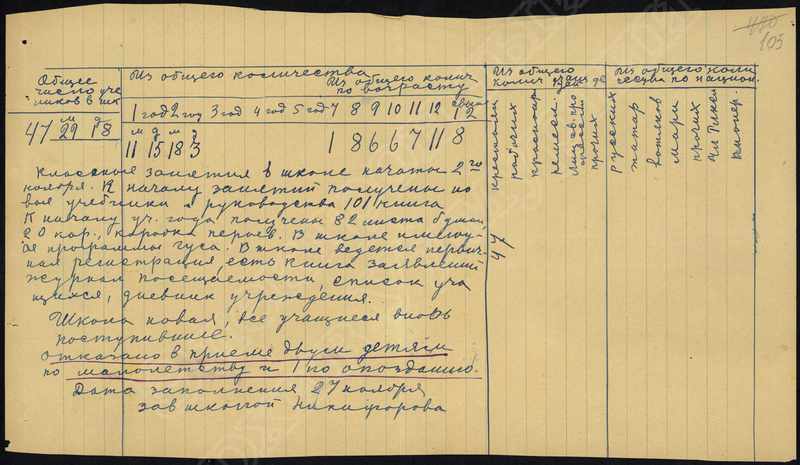 105
Общее число учеников в шк
Из общего количества
Из общего колич по возрасту
Из общего колич
Из общего количества по национ.
1 год 2 год 3 год 4 год 5 год 7 8 9 10 11 12 свыше 12
крестьян рабочих ремесл. прочих
русских татар вотяков мари прочих Пионер.
47 м 29 д 18
м д м д
11 15 18 3 1 8 6 6 7 11 8
47
Классные занятия в школе начаты 2го
ноября. К началу занятий получены но
вые учебники и руководства 101 книга
К началу уч. года получен 82 листа бумаги,
20 кар., коробка перьев. В школе имеют
ся программы гуса. В школе ведется первич
ная регистрация, есть книга заявлений
журнал посещаемости, список уча
щихся, дневник учреждения.
Школа новая, все учащиеся вновь
поступившие.
Отказано в приеме двум детям
по малолетству и 1 по опозданию.
Дата заполнения 27 ноября
зав школой Никифорова